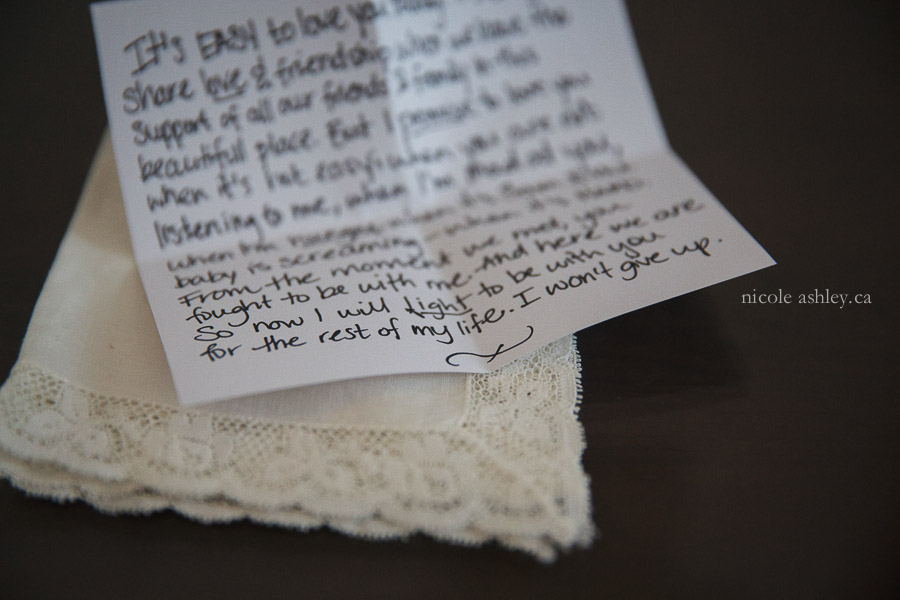 It's EASY to love you today
share love & friendship
support of all our friends & family in this
beautiful place. But I promise to love you
when it's not easy: when you are not
listening to me, when I'm mad at you,
when
baby is screaming
From the moment we met, you
fought to be with me. And here we are
So now I will fight to be with you
for the rest of my life. I won't give up.
nicole ashley.ca